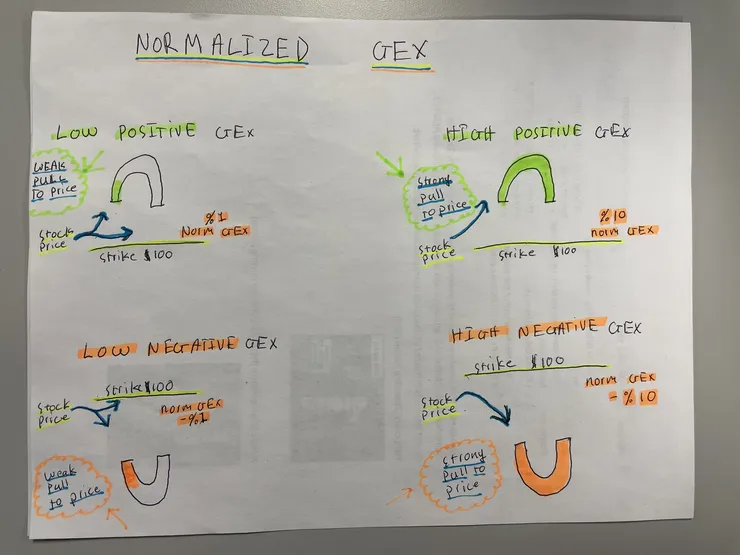 NORMALIZED GEX
LOW POSITIVE GEX
WEAK
PULL
TO PRICE
STOCK
PRICE
%1
NORM GEX
STRIKE $100
HIGH POSITIVE GEX
Strong
pull
to price
STOCK
PRICE
%10
NORM GEX
STRIKE $100
LOW NEGATIVE GEX
STRIKE $100
STOCK
PRICE
NORM GEX
-%1
Weak
pull
to price
HIGH NEGATIVE GEX
STRIKE $100
STOCK
PRICE
NORM GEX
- %10
Strong
pull to
price